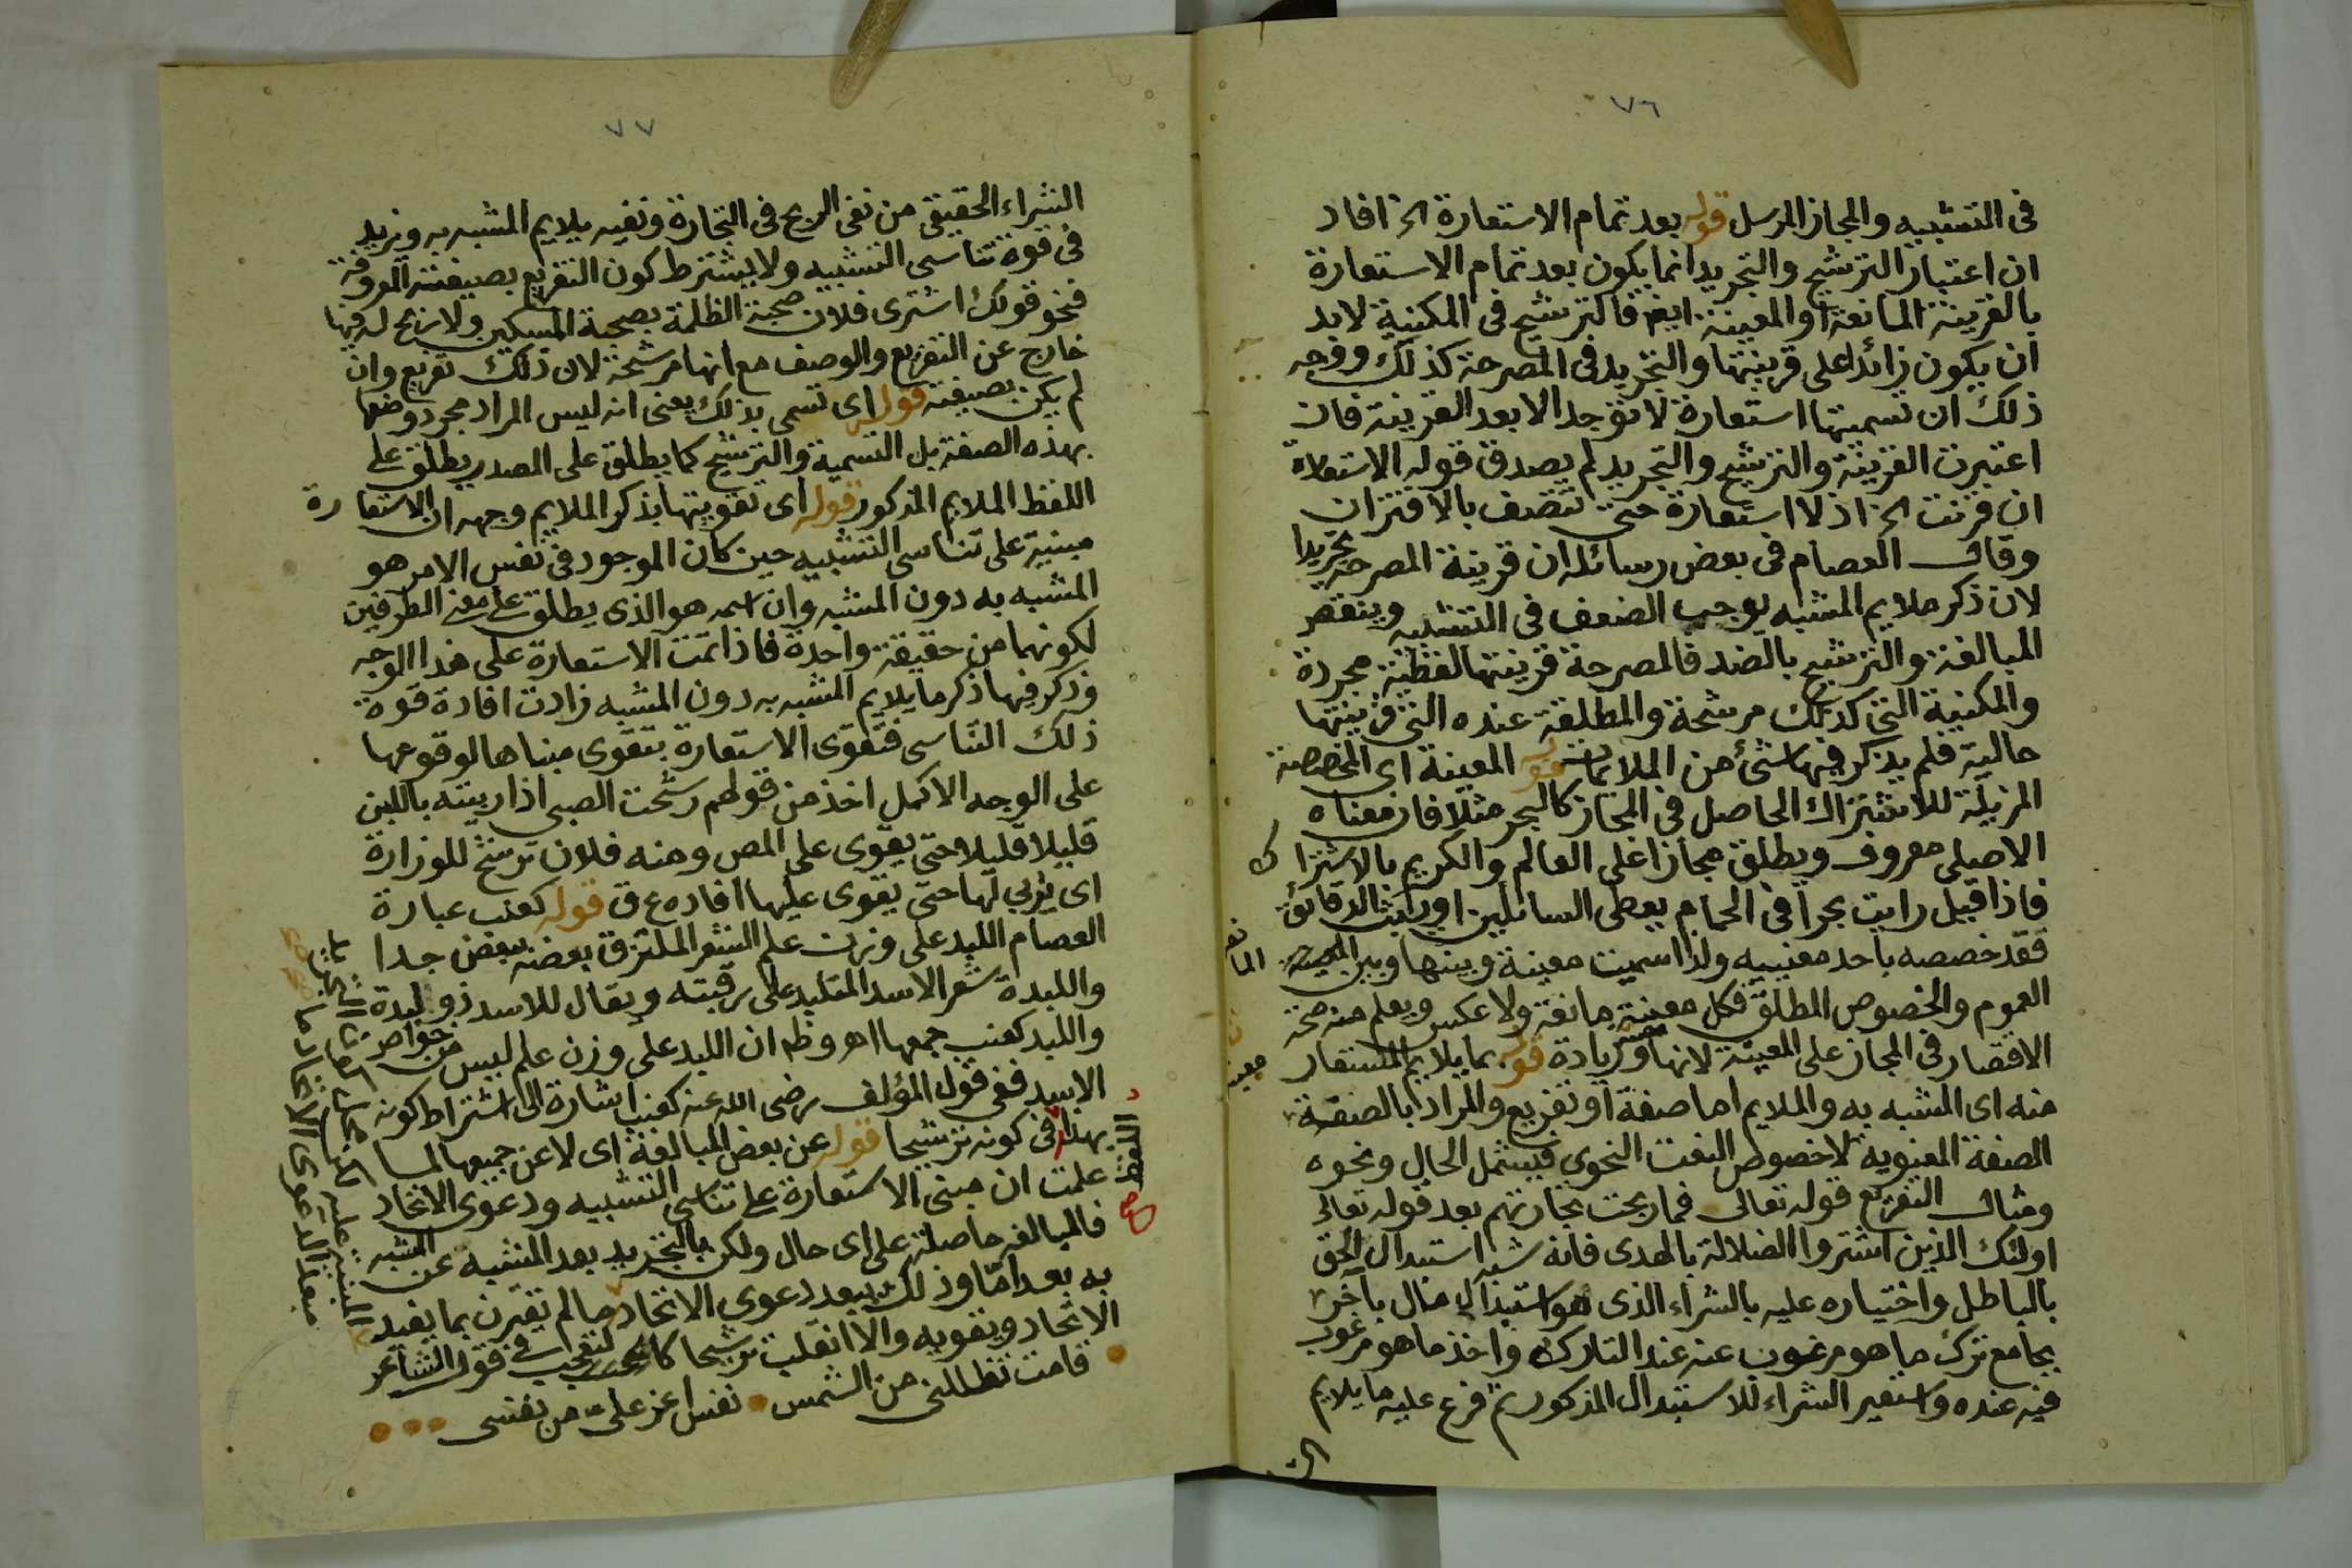 ٧٦
فى التشبيه والمجاز المرسل قوله بعد تمام الاستعارة الخ افاد
ان اعتبار الترشيح والتجريد انما يكون بعد تمام الاستعارة
بالقرينة المانعة او المعينة ايضا فالترشيح فى المكنية لابد
ان يكون زائدا على قرينتها والتجريد فى المصرحة كذلك ووجه
ذلك ان تسميتها استعارة لا توجد الا بعد القرينة فان
اعتبرت القرينة والترشيح والتجريد لم يصدق قوله الاستعارة
ان قرنت الخ اذ لا استعارة حتى تتصف بالاقتران
وقال العصام فى بعض رسائله ان قرينة المصرحة تجريدا
لان ذكر ملايم المشبه يوجب الضعف فى التشبيه وينقص
المبالغة والترشيح بالضد فالمصرحة قرينتها لفظية مجردة
والمكنية التى كذلك مرشحة والمطلقة عنده التى قرينتها
حالية فلم يذكر فيها شئ من الملايمات قوله المعينة اى المخصصة
المزيلة للاشتراك الحاصل فى المجاز كالبحر مثلا فان معناه
الاصلى معروف ويطلق مجازا على العالم والكريم بالاشتراك
فاذا قيل رايت بحرا فى الحمام يعطى السائلين او يبث الدقائق
فقد خصصه باحد معنييه ولذا سميت معينة وبينها وبين المانعة
العموم والخصوص المطلق فكل معينة مانعة ولا عكس ويعلم منه صحة
الاقتصار فى المجاز على المعينة لانها معينة وزيادة قوله بما يلايم المستعار
منه اى المشبه به والملايم اما صفة او تفريع والمراد بالصفة
الصفة المعنوية لا خصوص النعت النحوى فيشمل الحال ونحوه
ومثال التفريع قوله تعالى فما ربحت تجارتهم بعد قوله تعالى
اولئك الذين اشتروا الضلالة بالهدى فانه شبه استبدال الحق
بالباطل واختياره عليه بالشراء الذى هو استبدال مال بآخر
بجامع ترك ما هو مرغوب عنه عند التارك واخذ ما هو مرغوب
فيه عنده واستعير الشراء للاستبدال المذكور ثم فرع عليه ما يلايم
٧٧
الشراء الحقيقى من نفى الربح فى التجارة ونفيه يلايم المشبه به ويزيد
فى قوة تناسى التشبيه ولا يشترط كون التفريع بصيغته المعروفة
فنحو قولك اشترى فلان صحبة الظلمة بصحبة المسكين ولا ربح له فيها
خارج عن التفريع والوصف مع انها مرشحة لان ذلك تفريع وان
لم يكن بصيغته قوله اى تسمى بذلك يعنى انه ليس المراد مجرد وصفها
بهذه الصفة بل التسمية والترشيح كما يطلق على المصدر يطلق على
اللفظ الملايم المذكور قوله اى تقويتها بذكر الملايم وجهه ان الاستعارة
مبنية على تناسى التشبيه حين كان الموجود فى نفس الامر هو
المشبه به دون المشبه وان اسمه هو الذى يطلق على معنى الطرفين
لكونهما من حقيقة واحدة فاذا تمت الاستعارة على هذا الوجه
وذكر فيها ذكر ما يلايم المشبه به دون المشبه زادت افادة قوة
ذلك التناسى فتقوى الاستعارة بتقوى مبناها لوقوعها
على الوجه الاكمل اخذ من قولهم رشحت الصبى اذا ربيته باللبن
قليلا قليلا حتى يقوى على المص ومنه فلان ترشح للوزارة
اى يربى لها حتى يقوى عليها افاده ع ق قوله كعنب عبارة
العصام اللبد على وزن علم الشعر الملتزق بعضه ببعض جدا
واللبدة شعر الاسد المتلبد على رقبته ويقال للاسد ذو لبدة
واللبد كعنب جمعها اهـ وظهر ان اللبد على وزن علم ليس من خواص
الاسد ففى قول المؤلف رضى الله عنه كعنب اشارة الى اشتراط كونه
بهذا اللفظ فى كونه ترشيحا قوله عن بعض المبالغة اى لا عن جميعها لما
علمت ان مبنى الاستعارة على تناسى التشبيه ودعوى الاتحاد
فالمبالغة حاصلة على اى حال ولكن بالتجريد بعد المشبه عن المشبه
به بعد اما وذلك يبعد دعوى الاتحاد ما لم يقترن بما يفيد
الاتحاد ويقويه والا انقلب ترشيحا كالتعجب فى قول الشاعر
قامت تظللنى من الشمس نفس اعز على من نفسى